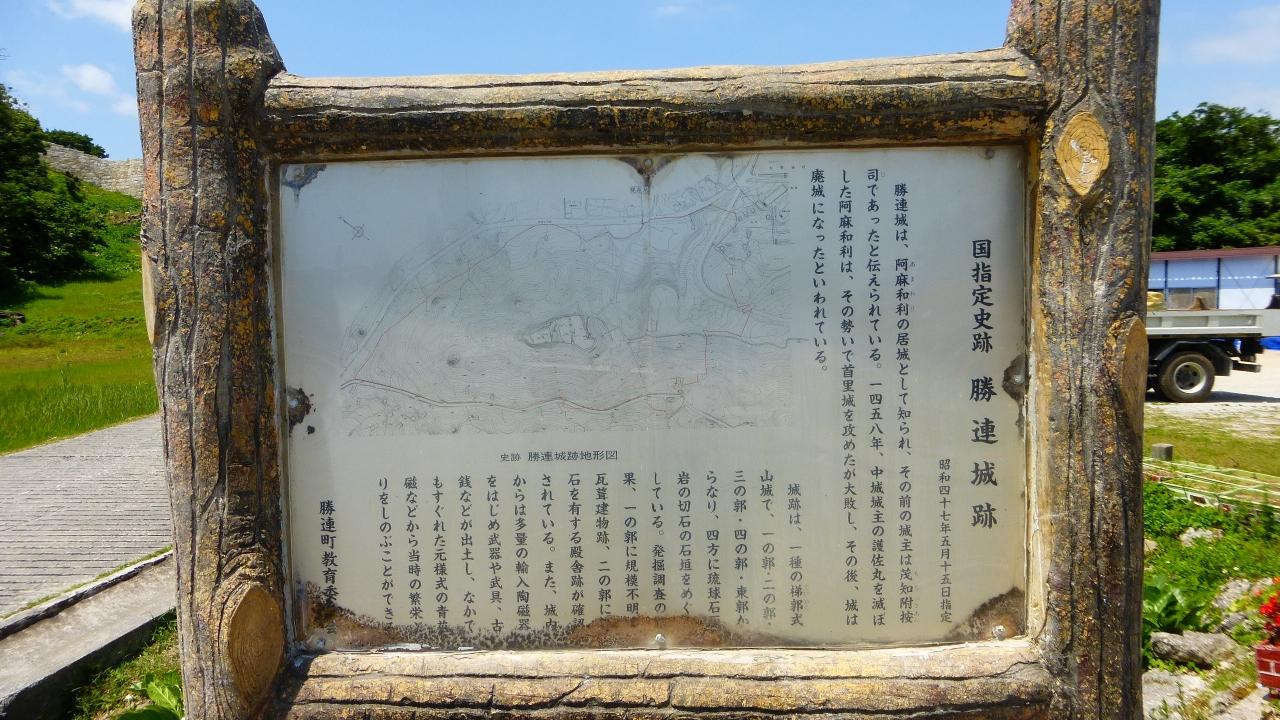 国指定史跡　勝連城跡
昭和四十七年五月十五日指定
勝連城は、阿麻和利の居城として知られ、その前の城主は茂知附按
司であったと伝えられている。一四五八年、中城城主の護佐丸を滅ぼ
した阿麻和利は、その勢いで首里城を攻めたが大敗し、その後、城は
廃城になったといわれている。
城跡は、一種の梯郭式
山城で、一の郭・二の郭
三の郭・四の郭・東郭か
らなり、四方に琉球石
岩の切石の石垣をめぐ
している。発掘調査の
果、一の郭に規模不明
瓦葺建物跡、二の郭に
石を有する殿舎跡が確認
されている。また、城内
からは多量の輸入陶磁器
をはじめ武器や武具、古
銭などが出土し、なかで
もすぐれた元様式の青
磁などから当時の繁
りをしのぶことができ
勝連町教育委
史跡 勝連城跡地形図